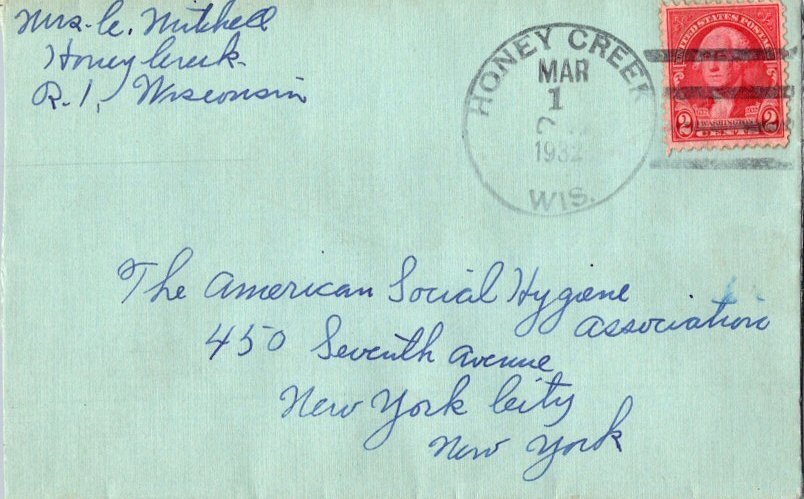 Mrs. C. Mitchell
Honey Creek
R. 1, Wisconsin
HONEY CREEK
MAR
1
1932
WIS.
UNITED STATES POSTAGE
2 WASHINGTON 2
CENTS
The American Social Hygiene
Association
450 Seventh Avenue
New York City
New York